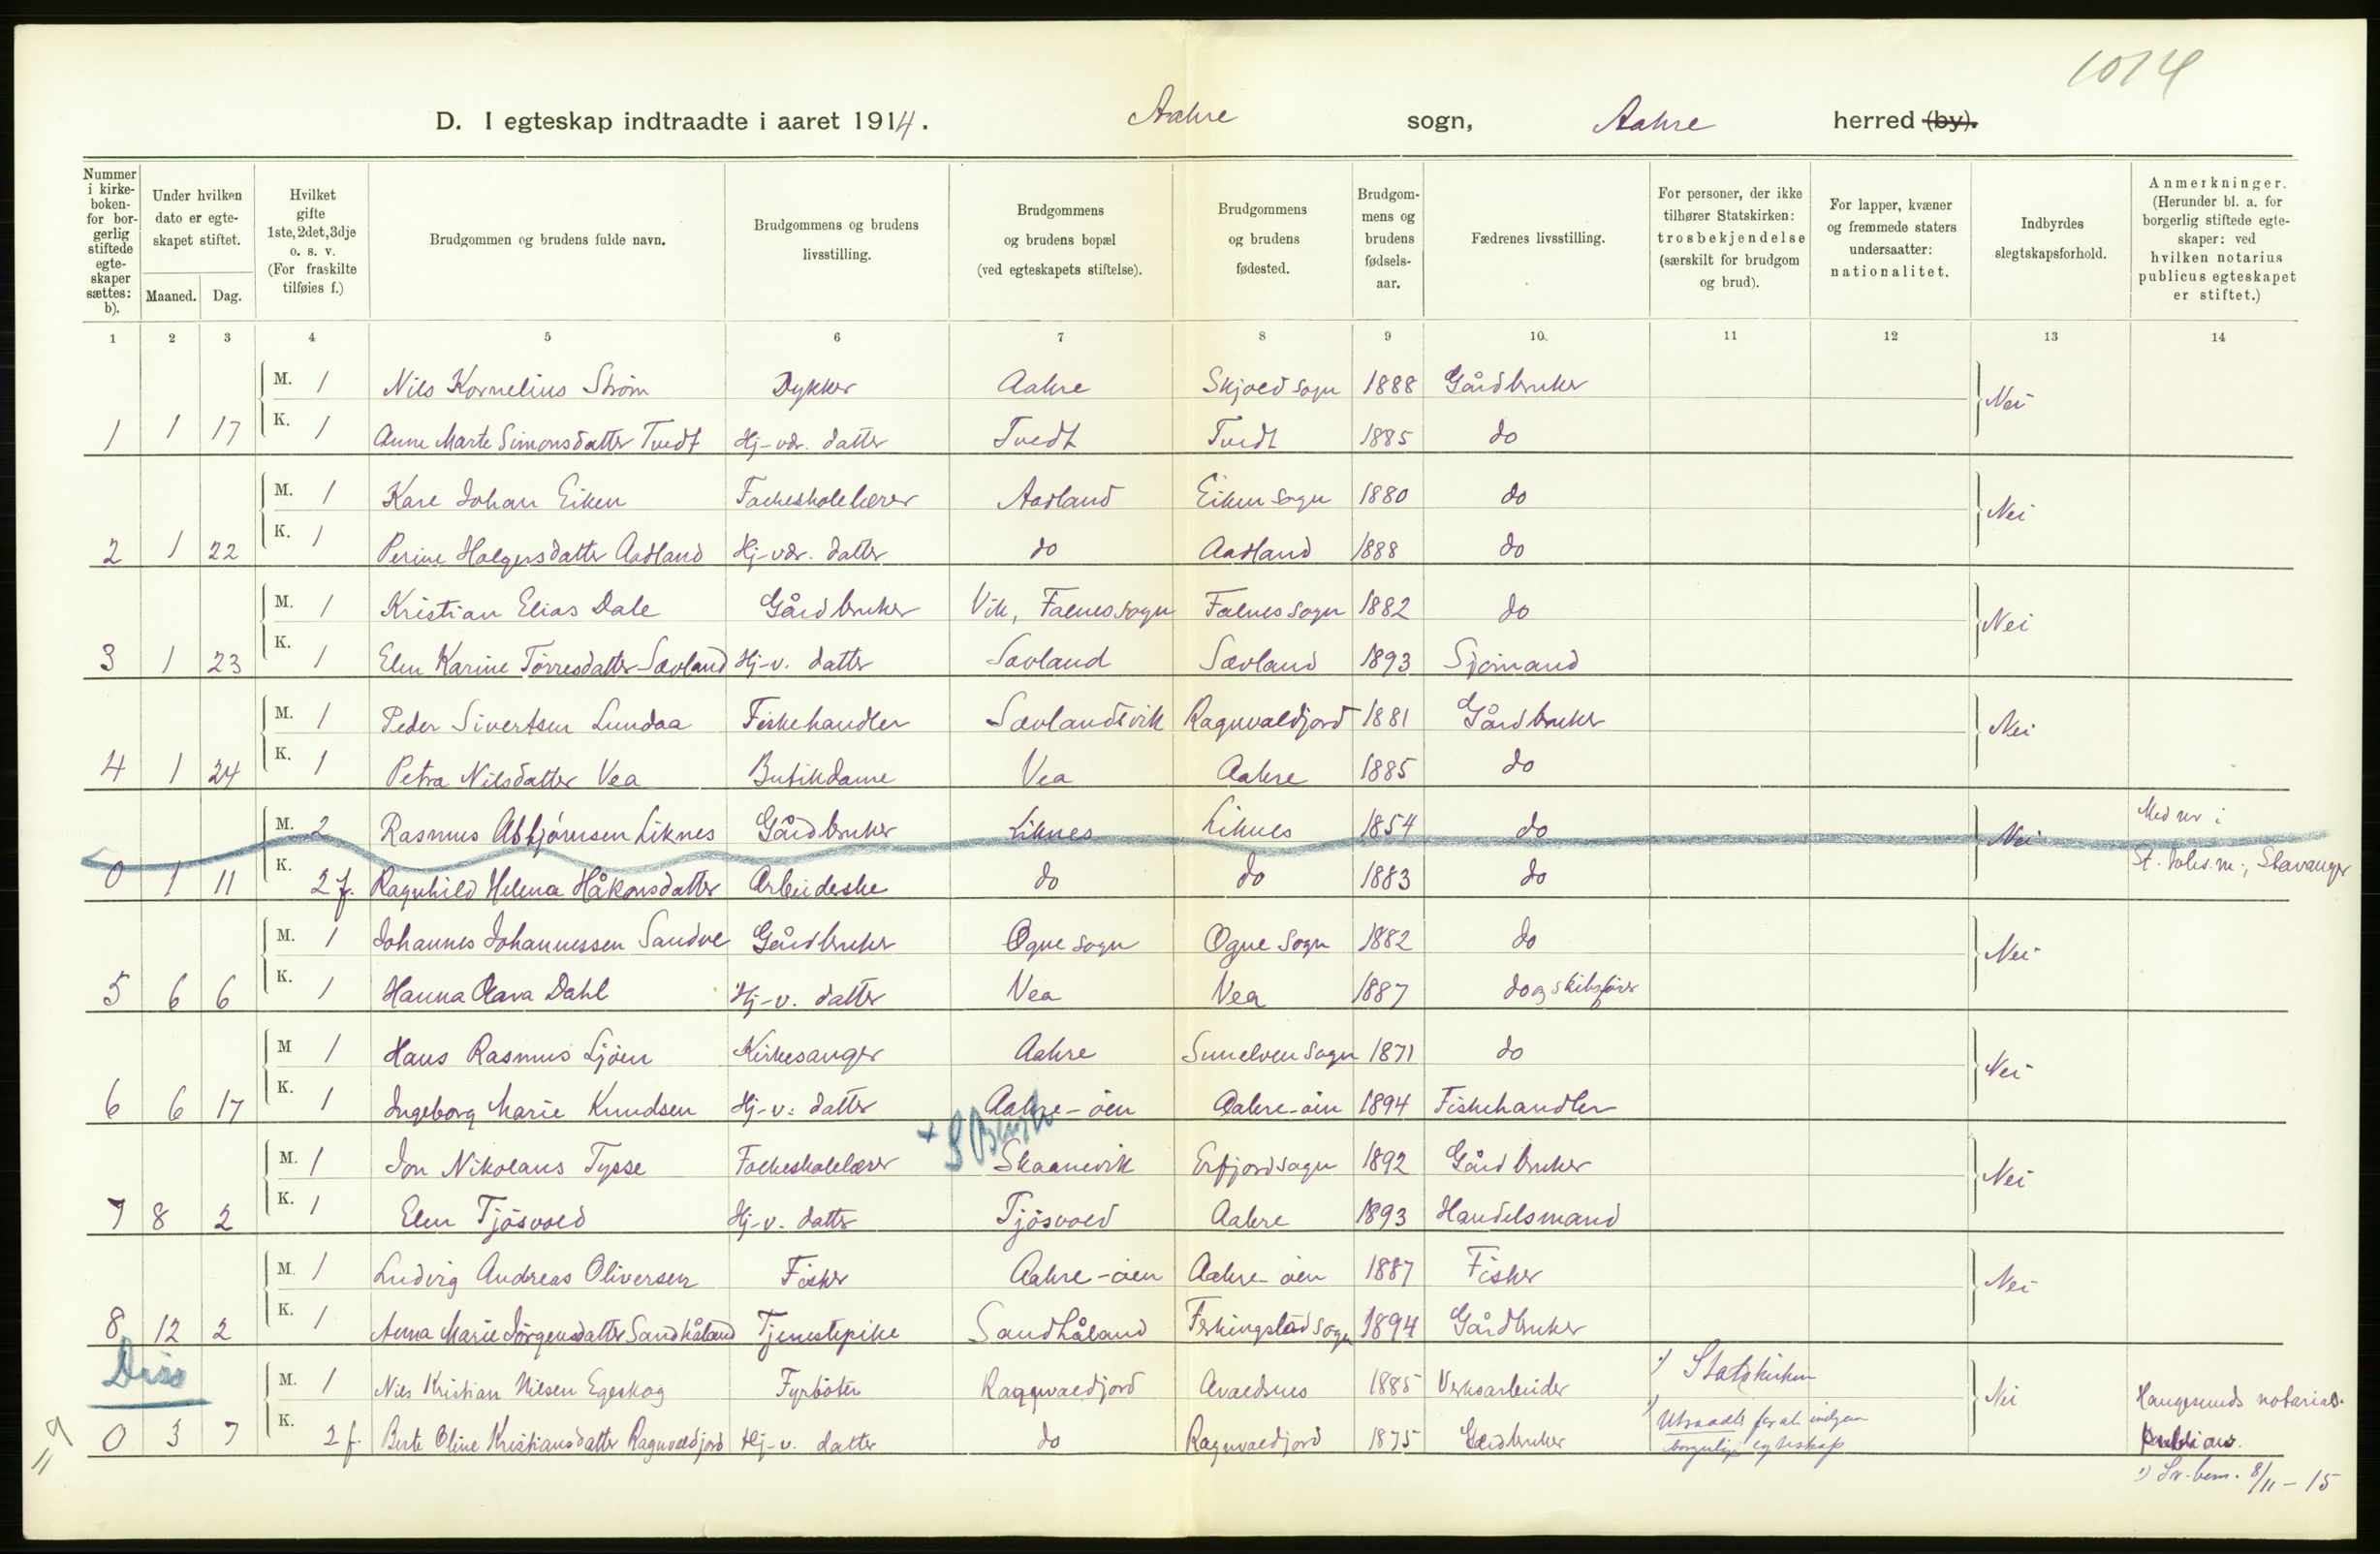 1014
D. I egteskap indtraadte i aaret 1914. Aakre sogn, Aakre herred (by).
Nummer i kirke-boken for bor-gerlig stiftede egte-skaper sættes: b).
Under hvilken dato er egte-skapet stiftet.
Maaned. Dag.
Hvilket gifte 1ste, 2det, 3dje o. s. v. (For fraskilte tilføies f.)
Brudgommen og brudens fulde navn.
Brudgommens og brudens livsstilling.
Brudgommens og brudens bopæl (ved egteskapets stiftelse).
Brudgommens og brudens fødested.
Brudgom-mens og brudens fødsels-aar.
Fædrenes livsstilling.
For personer, der ikke tilhører Statskirken: trosbekjendelse (særskilt for brudgom og brud).
For lapper, kvæner og fremmede staters undersaatter: nationalitet.
Indbyrdes slegtskapsforhold.
Anmerkninger. (Herunder bl. a. for borgerlig stiftede egte-skaper: ved hvilken notarius publicus egteskapet er stiftet.)
1 2 3 4 5 6 7 8 9 10. 11 12 13 14
M. 1 Nils Kornelius Strøm Dykker Aakre Skjold sogn 1888 Gårdbruker Nei
1 1 17 K. 1 Anne Marte Simonsdatter Tvedt Hj-vær. datter Tvedt Tvedt 1885 do
M. 1 Kare Johan Eiken Folkeskolelærer Aadland Eiken sogn 1880 do Nei
2 1 22 K. 1 Perine Holgersdatter Aadland Hj-vær. datter do Aadland 1888 do
M. 1 Kristian Elias Dale Gårdbruker Vik, Falnes sogn Falnes sogn 1882 do Nei
3 1 23 K. 1 Elen Karine Tørresdatter Sævland Hj-v. datter Sævland Sævland 1893 Sjömand
M. 1 Peder Sivertsen Lundaa Fiskehandler Sævlandsvik Ragnvaldjord 1881 Gårdbruker Nei
4 1 24 K. 1 Petra Nilsdatter Vea Butikdame Vea Aakre 1885 do
M. 2 Rasmus Abbjørnsen Liknes Gårdbruker Liknes Liknes 1854 do Nei Med nr i
0 1 11 K. 2 f. Ragnhild Helena Håkonsdatter Arbeideske do do 1883 do Stavanger
M. 1 Johannes Johannessen Sandve Gårdbruker Ogne sogn Ogne sogn 1882 do Nei
5 6 6 K. 1 Hanna Olava Dahl Hj-v. datter Vea Vea 1887 do og skibsfører
M 1 Hans Rasmus Ljöen Kirkesanger Aakre Sunelven sogn 1871 do Nei
6 6 17 K. 1 Ingeborg Marie Knudsen Hj-v. datter Aakre-öen Aakre-öen 1894 Fiskehandler
M. 1 Jon Nikolaus Tysse Folkeskolelærer + Skaanevik Erfjord sogn 1892 Gårdbruker Nei
7 8 2 K. 1 Elen Tjösvold Hj-v. datter Tjösvold Aakre 1893 Handelsmand
M. 1 Ludvig Andreas Oliversen Fisker Aakre-öen Aakre-öen 1887 Fisker Nei
8 12 2 K. 1 Anna Marie Jörgensdatter Sandhåland Tjenestepike Sandhåland Ferkingstad sogn 1894 Gårdbruker
Diss
M. 1 Nils Kristian Nilsen Egeskog Fyrböter Ragnvaldjord Avaldsnes 1885 Verksarbeider ¹) Statskirken Nei Haugesunds notarius
0 3 7 K. 2 f. Berte Oline Kristiansdatter Ragnvaldjord Hj-v. datter do Ragnvaldjord 1875 Gårdbruker ¹) Utraadt for at indgaa borgerlig egteskap publicus.
¹) Sv. bem. 8/11 - 15